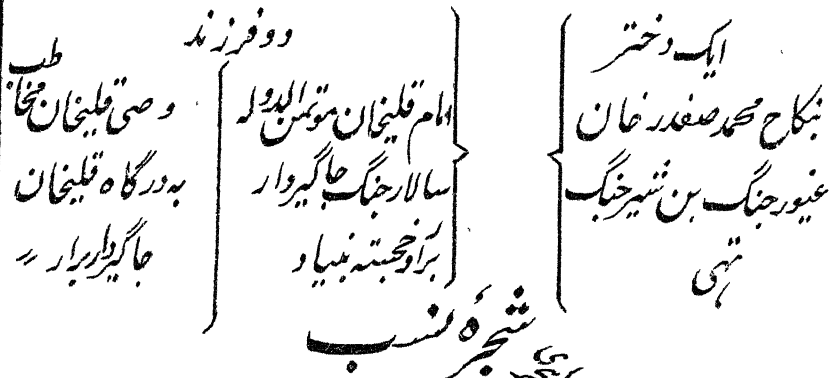 ایک دختر
نکاح محمد صفدر خان
غیور جنگ بن شیر جنگ
تھی
دو فرزند
امام قلیخان موتمن الدولہ
سالار جنگ جاگیردار
برار و خجستہ بنیاد
وصی قلیخان مخاطب
بہ درگاہ قلیخان
جاگیردار برار
شجرۂ نسب